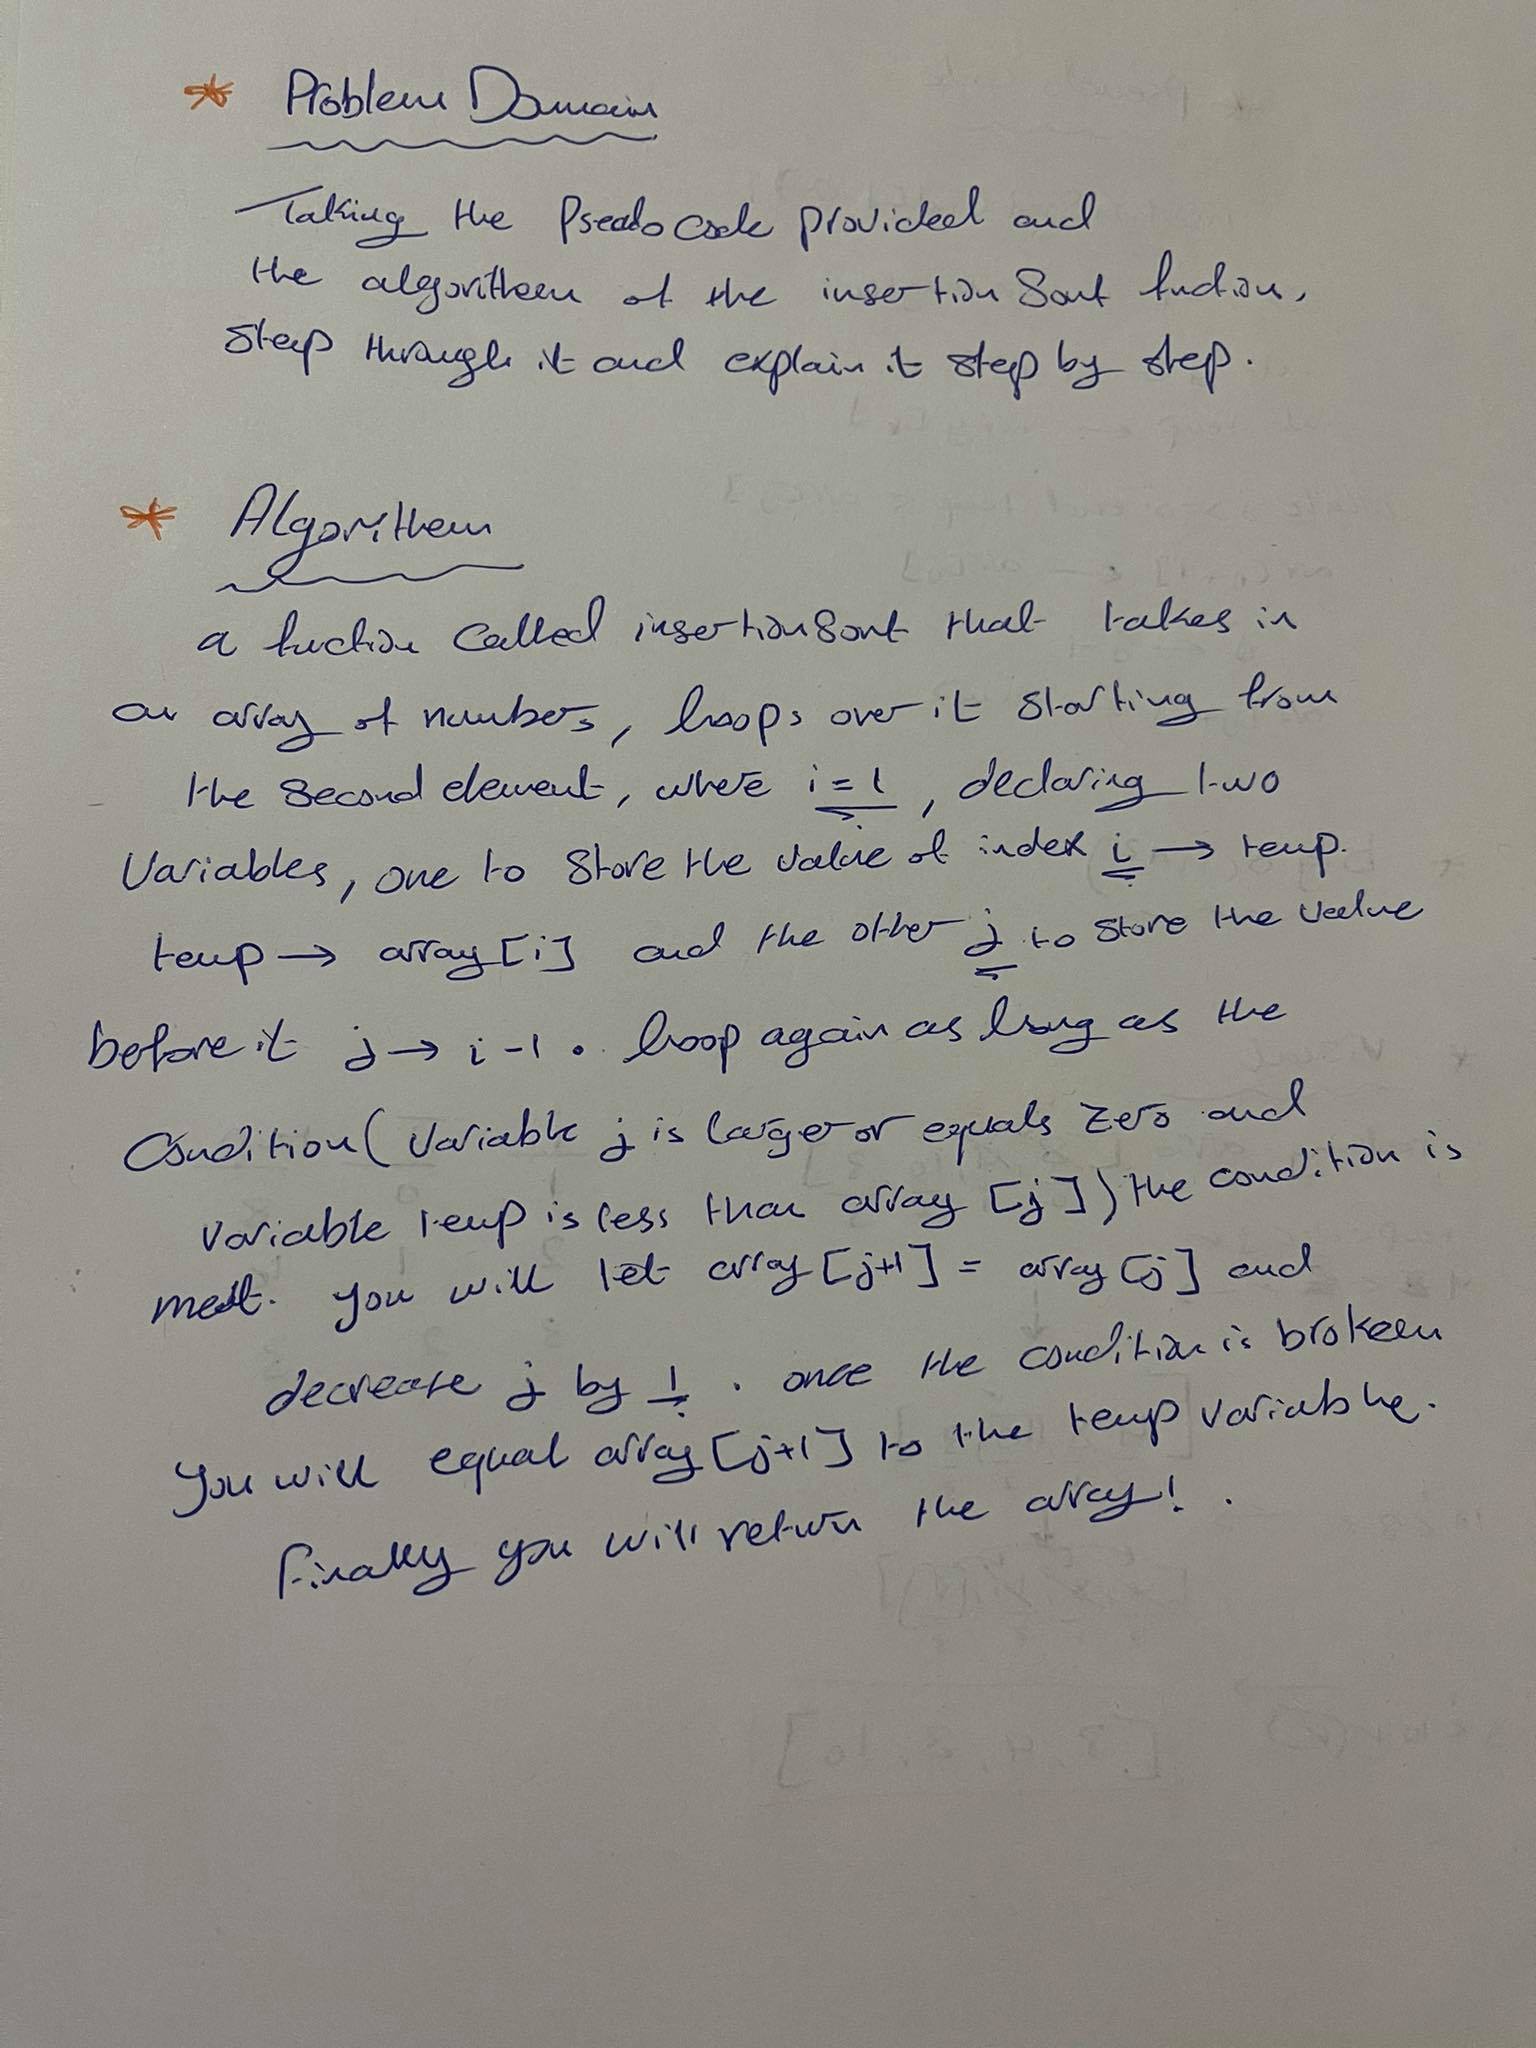 * Problem Domain
Taking the Pseudo code provided and
the algorithem of the insertion Sort function,
Step through it and explain it step by step.
* Algorithem
a function called insertionSort that takes in
an array of numbers, loops over it starting from
the second element, where i = 1, declaring two
Variables, one to Store the value of index i → temp.
temp → array [i] and the other j to store the value
before it j → i - 1 . loop again as long as the
Condition ( variable j is larger or equals zero and
variable temp is less than array [j] ) the condition is
meet. you will let array [j+1] = array [j] and
decrease j by 1 . once the condition is brokeen
you will equal array [j+1] to the temp variable.
Finally you will return the array! .